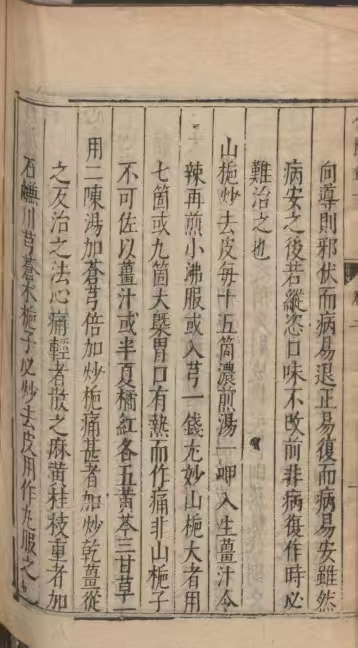 向導則邪伏而病易退正易復而病易安雖然
病安之後若縱恣口味不改前非病復作時必
難治之也
山梔炒去皮每十五箇濃煎湯一呷入生薑汁令
辣再煎小沸服或入芎一錢尤妙山梔大者用
七箇或九箇大槩胃口有熱而作痛非山梔子
不可佐以薑汁或半夏橘紅各五黃芩三甘草一
用二陳湯加蒼芎倍加炒梔痛甚者加炒乾薑從
之反治之法心痛輕者散之麻黃桂枝重者加
石鹻川芎蒼朮梔子必炒去皮用作丸服之